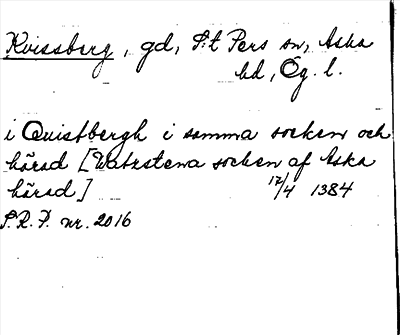 Kvissberg, gd, S:t Pers sn, Aska
hd, Ög. l.
i Quistbergh i samma socken och
härad [Watzstena socken af Aska
härad] 17/4 1384
S.R.P. nr. 2016